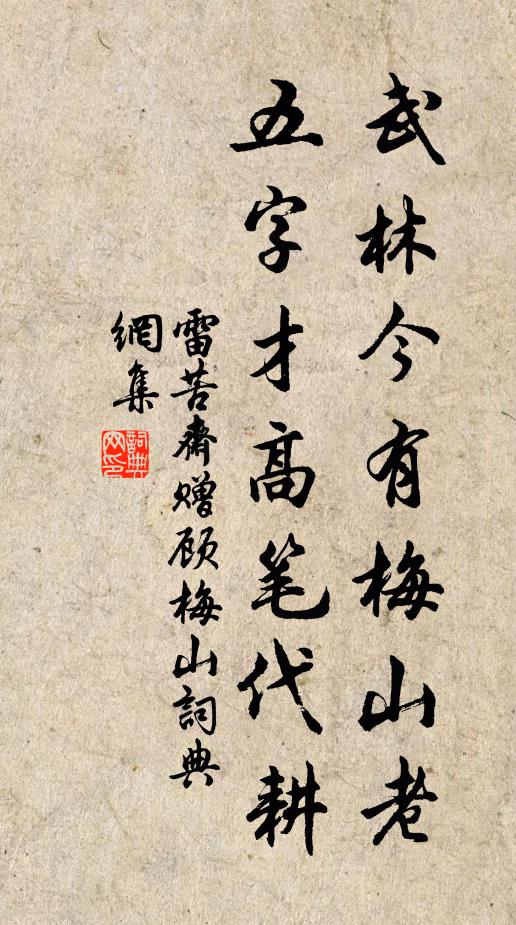 武林今有梅山老
五字才高笔代耕
雷苦斋赠顾梅山詞典
網集
詞典
网印